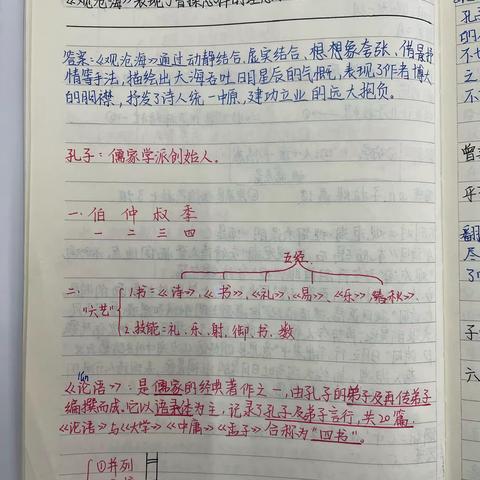 《观沧海》表现了曹操怎样的
答案:《观沧海》通过动静结合、虚实结合、想想象夸张、借景抒
情等手法,描绘出大海吞吐日月星辰的气概,表现了作者博大
的胸襟,抒发了诗人统一中原,建功立业的远大抱负。
孔子:儒家学派创始人。
一.伯 仲 叔 季
一 二 三 四
五经
二. "六艺"
1.书:《诗》、《书》、《礼》、《易》、《乐》《春秋》.
2.技能:礼、乐、射、御、书、数
lún
《论语》:是儒家的经典著作之一,由孔子的弟子及再传弟子
编撰而成。它以语录体为主,记录了孔子及弟子言行,共20篇.
《论语》与《大学》《中庸》《孟子》合称为"四书"。
①并列
孔子
的
不
之
不
曾
乎
翻
尽
了
子
六